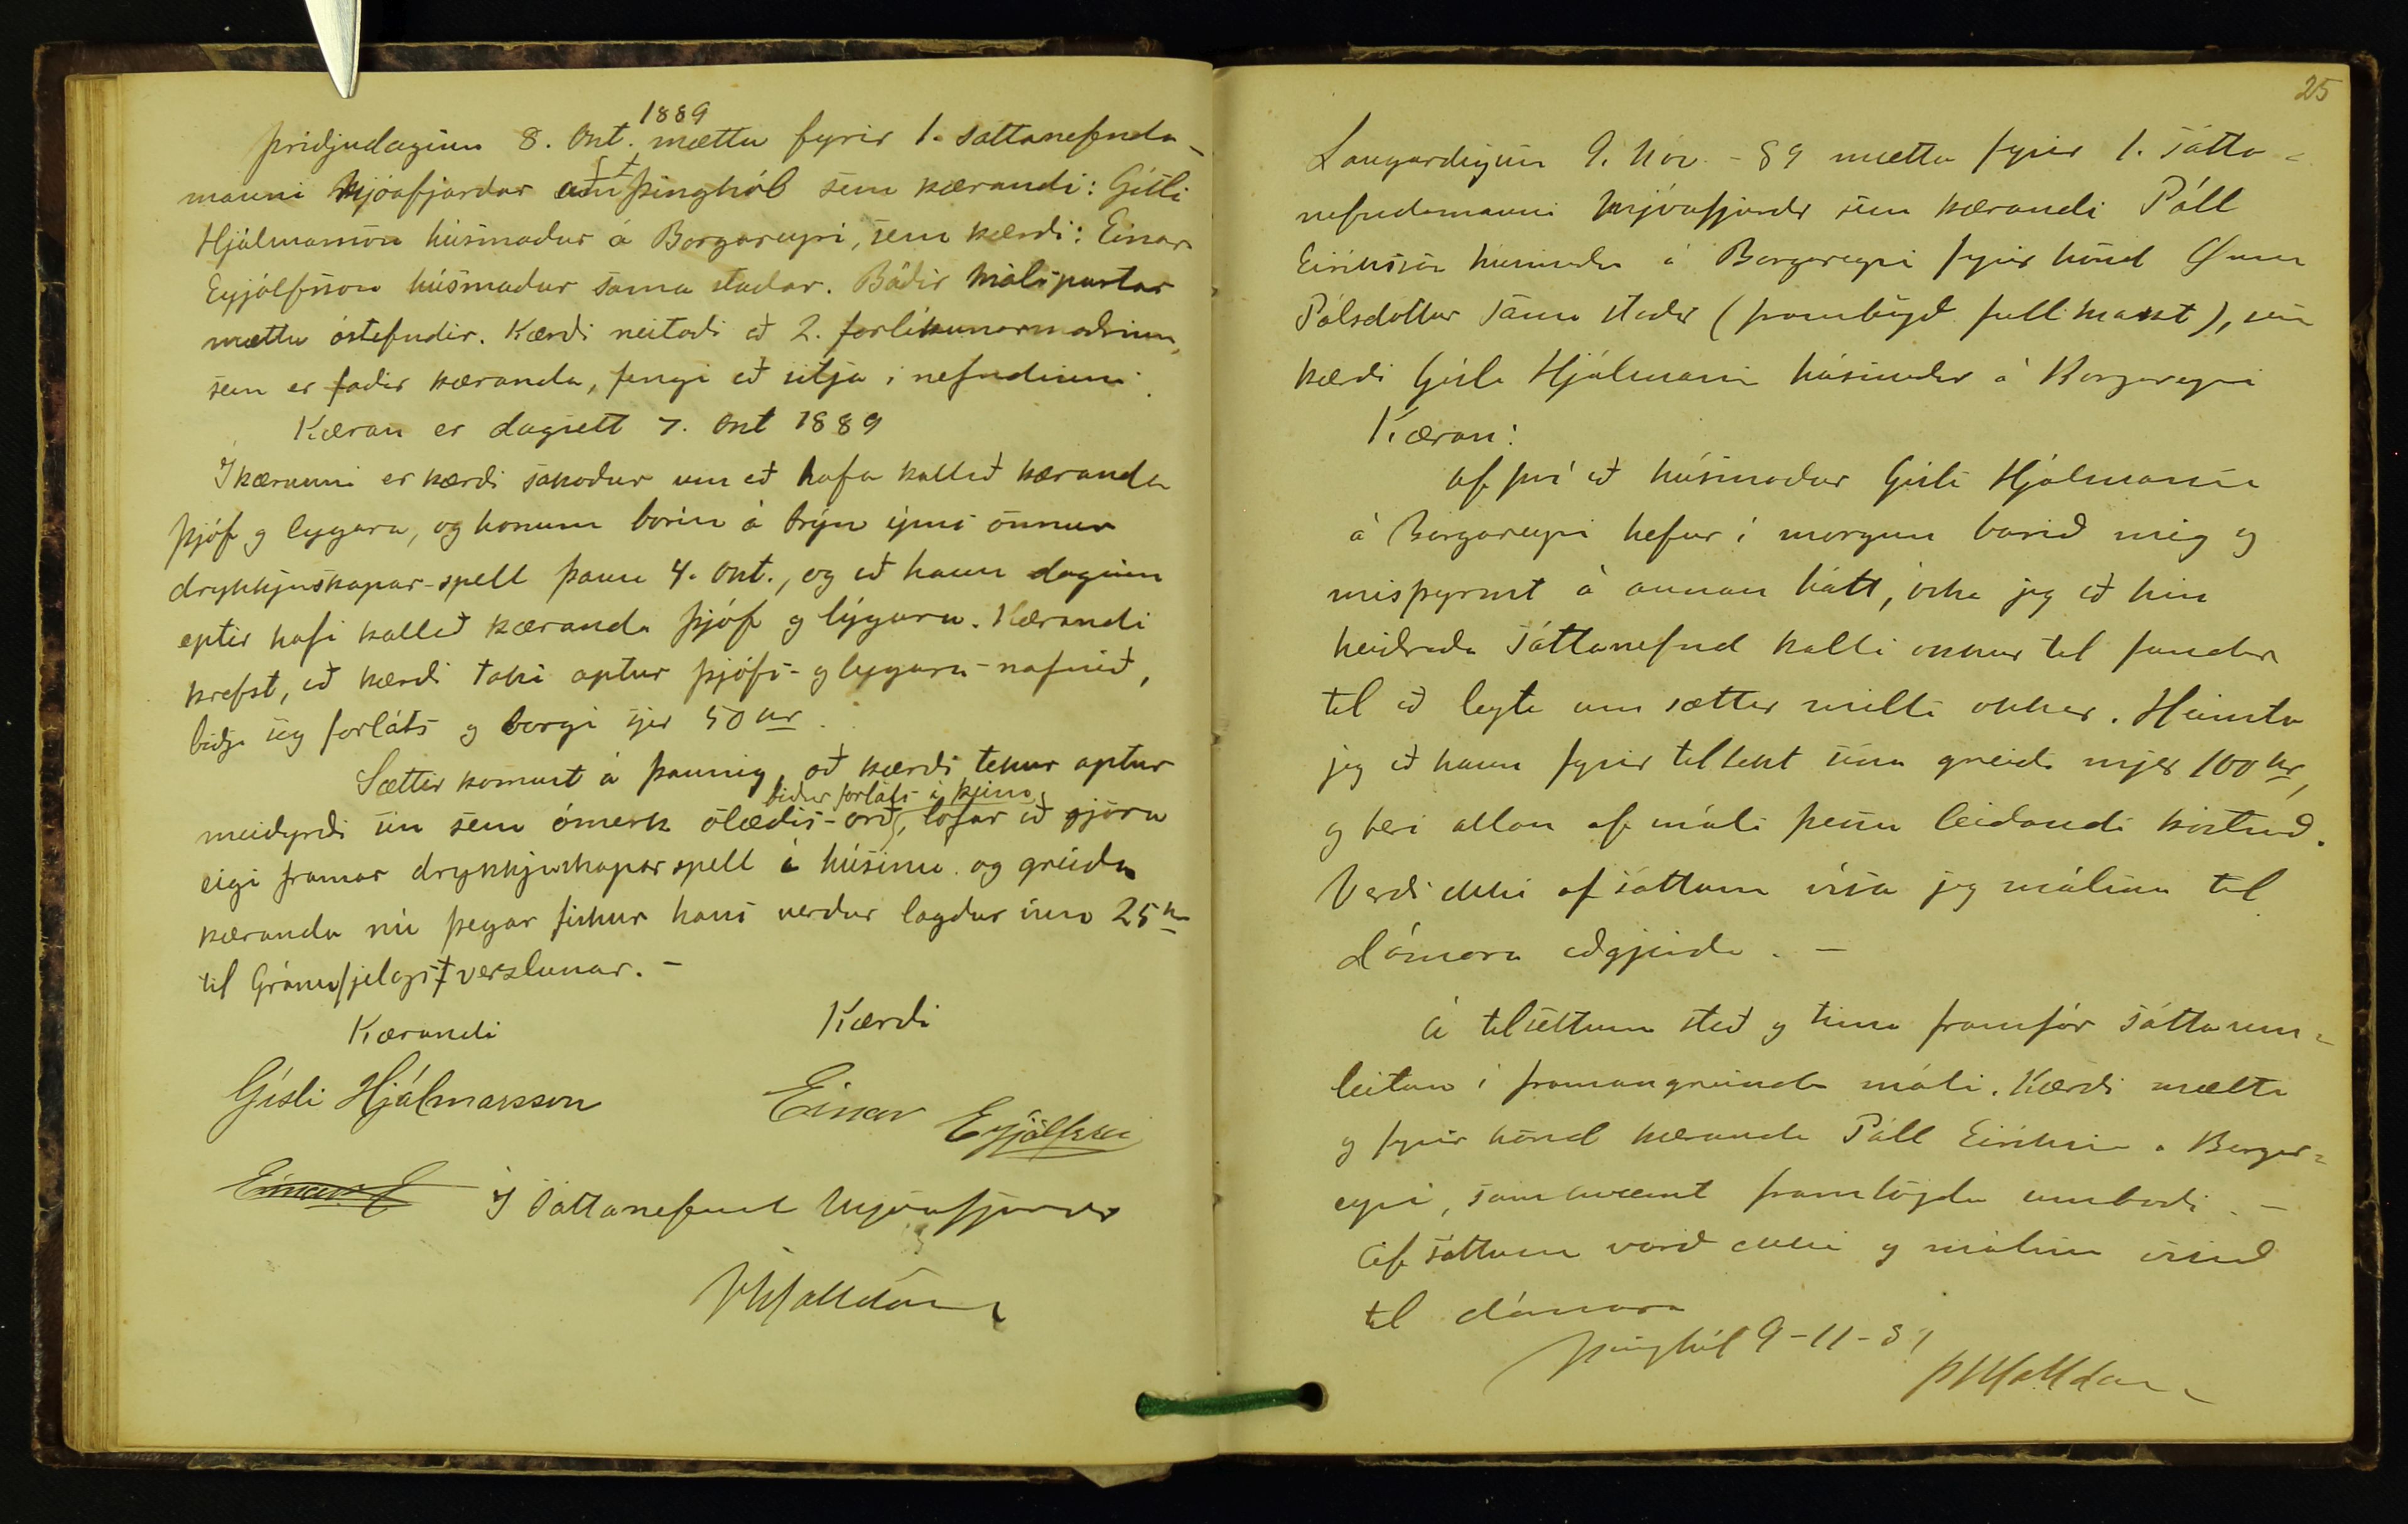 1889
Þriðjudaginn 8. Okt. mættu fyrir 1. sáttanefnda-
manni Mjóafjarðar að Þinghól sem kærandi: Gísli
Hjálmarsson húsmaður á Borgareyri, sem kærði: Einar
Eyjólfsson húsmaður sama staðar. Báðir málspartar
mættu óstefndir. Kærði neitaði að 2. forlíkunarmaðurinn,
sem er faðir kæranda, fengi að sitja í nefndinni.
Kæran er dagsett 7. Okt 1889
Í kærunni er kærði sakaður um að hafa kallað kæranda
þjóf og lygara, og honum borin á brýn ýms önnur
drykkjuskapar-spell þann 4. Okt., og að hann daginn
eptir hafi kallað kæranda þjóf og lygara. Kærandi
krefst, að kærði taki aptur þjófs- og lygara-nafnið,
biðji sig forláts og borgi sjer 50 kr.
Sættir komust á þannig, að kærði tekur aptur
biður forláts á þeim,
meiðyrði sín sem ómerk ölæðis-orð, lofar að gjöra
eigi framar drykkjuskapar spell í húsinu og greiða
kæranda nú þegar fiskur hans verður lagður inn 25 kr
til Gránufjelagsverslunar. -
Kærandi Kærði
Gísli Hjálmarsson Einar Eyjólfsson
Einar E Í Sáttanefnd Mjóafjarðar

25
Laugardaginn 9. Nóv. - 89 mætti fyrir 1. sátta-
nefndamanni Mjóafjarðar sem kærandi Páll
Eiríksson húsmaður á Borgareyri fyrir hönd
Pálsdóttur sama staðar (frambýð fullmakt), sem
kærði Gísla Hjálmarsson húsmaður á Borgareyri
Kæran:
Af því að húsmaður Gísli Hjálmarsson
á Borgareyri hefur í morgun barið mig og
misþyrmt á annan hátt, óska jeg að hin
heiðraða sáttanefnd kalli okkur til fundar
til að leyta um sættir milli okkar. Heimta
jeg að hann fyrir tiltekt sína greiði mjer 100 kr,
og beri allan af máli þessu leiðandi kostnað.
Verði ekki af sáttum vísa jeg málinu til
dómara aðgjörða. -
Á tilsettum stað og tíma framfór sáttaum-
leitun í framangreindu máli. Kærði mætti
og fyrir hönd kæranda Páll Eiríksson á Borgar-
eyri, samkvæmt framlögðu umboði. -
Af sáttum varð ekki og málinu vísað
til dómara
Þinghól 9-11-89